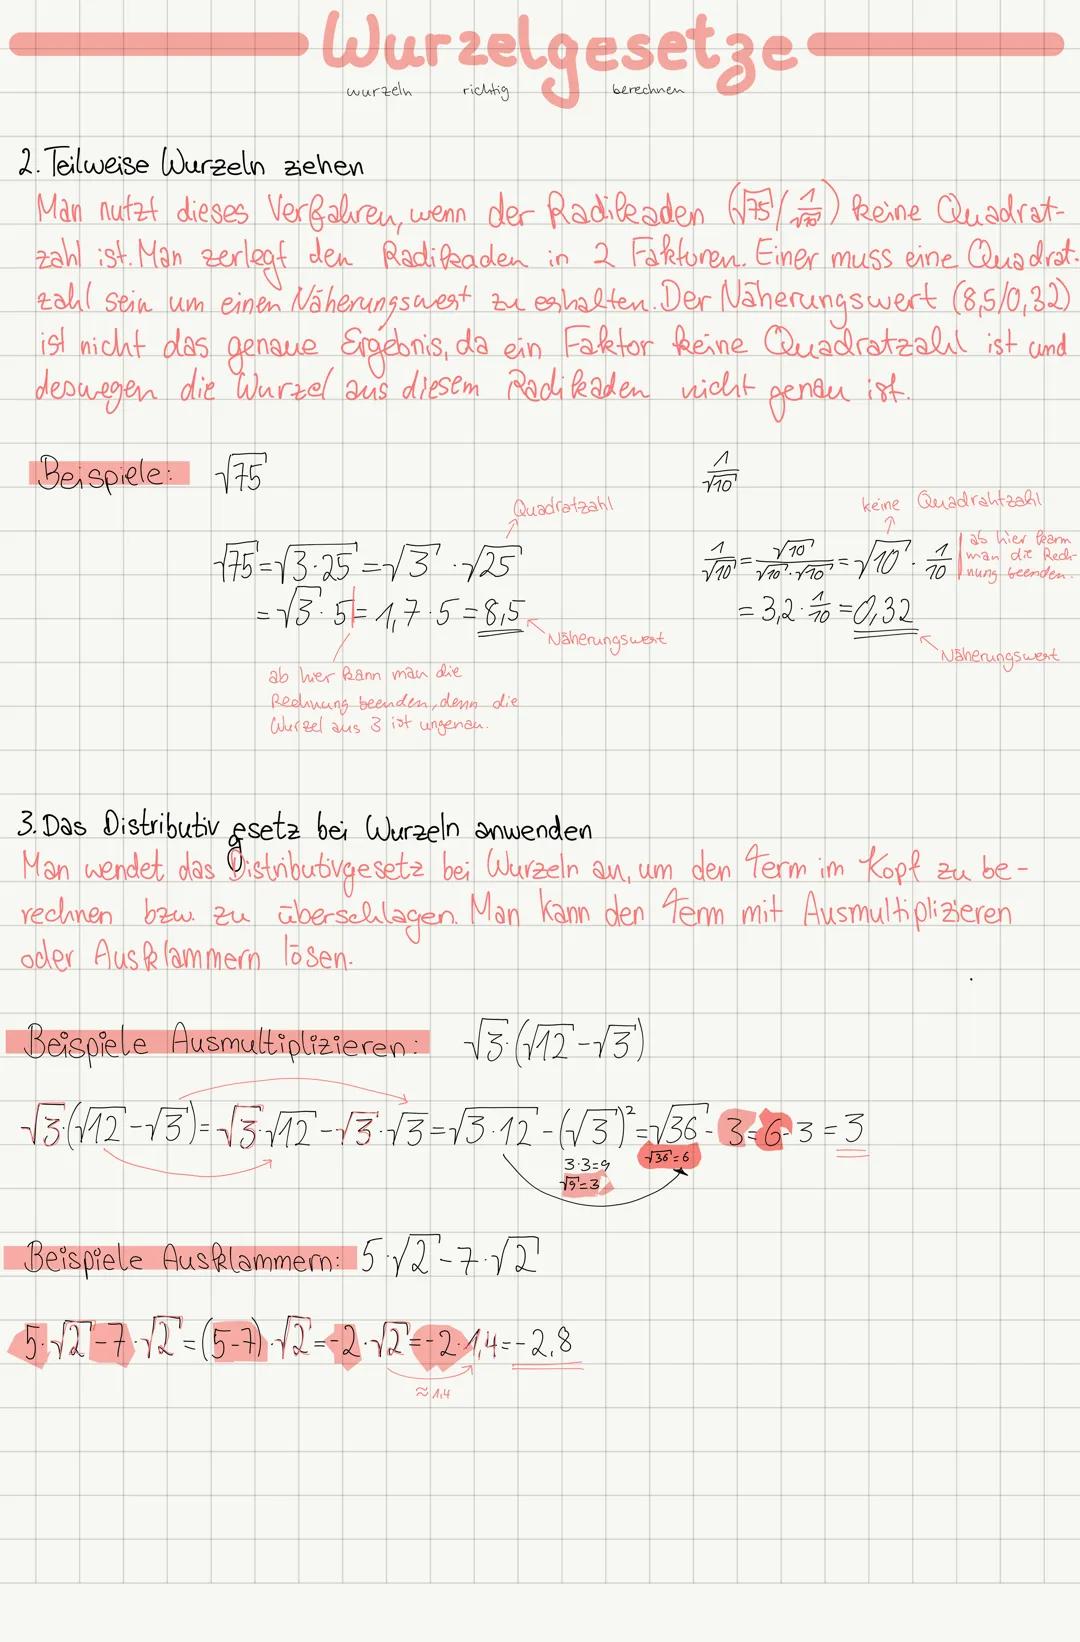 Wurzelgesetze
wurzeln richtig berechnen
2. Teilweise Wurzeln ziehen
Man nutzt dieses Verfahren, wenn der Radikaden (√75 / 1/√10) keine Quadrat-
zahl ist. Man zerlegt den Radikaden in 2 Fakturen. Einer muss eine Quadrat-
zahl sein um einen Näherungswert zu erhalten. Der Näherungswert (8,5/0,32)
ist nicht das genaue Ergebnis, da ein Faktor keine Quadratzahl ist und
deswegen die Wurzel aus diesem Radikaden nicht genau ist.
Beispiele: √75
1/√10
Quadratzahl
keine Quadrahtzahl
√75 = √3·25 = √3 · √25
= √3 · 5 = 1,7 · 5 = 8,5
Näherungswert
ab hier kann man die
Rechnung beenden, denn die
Wurzel aus 3 ist ungenau.
1/√10 = √10/√10·√10 = √10 · 1/10
ab hier kann
man die Rech-
nung beenden.
= 3,2 · 1/10 = 0,32
Näherungswert
3. Das Distributivgesetz bei Wurzeln anwenden
Man wendet das Distributivgesetz bei Wurzeln an, um den Term im Kopf zu be-
rechnen bzw. zu überschlagen. Man kann den Term mit Ausmultiplizieren
oder Ausklammern lösen.
Beispiele Ausmultiplizieren: √3·(√12-√3)
√3·(√12-√3) = √3·√12-√3·√3 = √3·12-(√3)² = √36-3 = 6-3 = 3
3·3=9
√9=3
√36=6
Beispiele Ausklammern: 5·√2-7·√2
5·√2-7·√2 = (5-7)·√2 = -2·√2 = -2·1,4 = -2,8
≈1,4